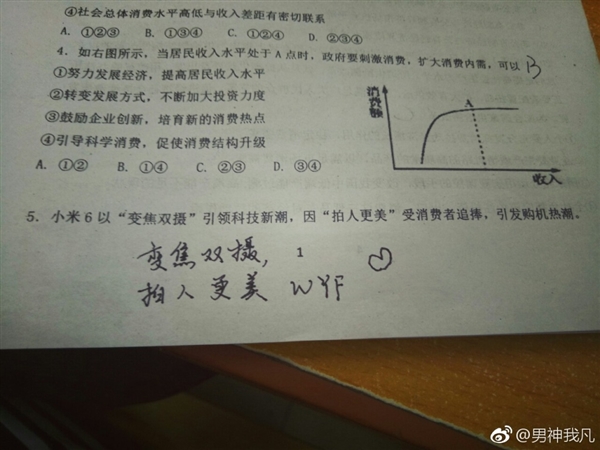 ④社会总体消费水平高低与收入差距有密切联系
A. ①②③ B. ①③④ C. ①②④ D. ②③④
4. 如右图所示，当居民收入水平处于A点时，政府要刺激消费，扩大消费内需，可以 B
①努力发展经济，提高居民收入水平
②转变发展方式，不断加大投资力度
③鼓励企业创新，培育新的消费热点
④引导科学消费，促使消费结构升级
A. ①② B. ①④ C. ②③ D. ③④
消费额
A
收入
5. 小米6以“变焦双摄”引领科技新潮，因“拍人更美”受消费者追捧，引发购机热潮。
变焦双摄，
1
拍人更美 WYF
@男神我凡